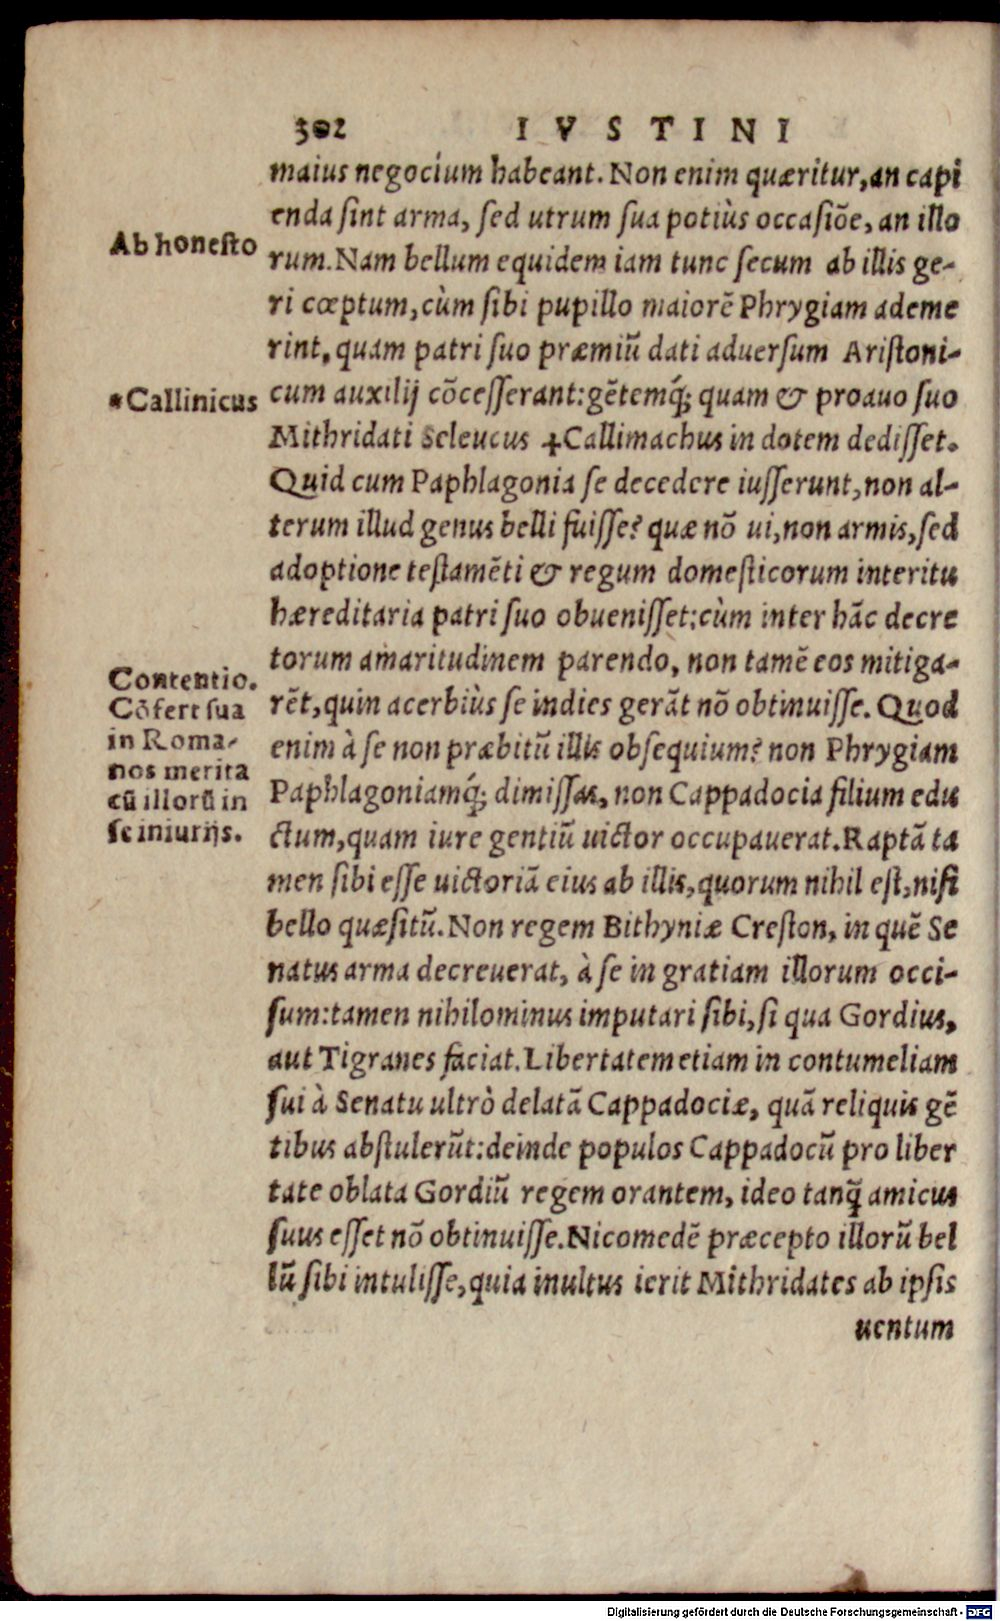 302 IVSTINI
maius negocium habeant. Non enim quæritur, an capi
enda ſint arma, ſed utrum ſua potiùs occaſiõe, an illo
Ab honeſto
rum. Nam bellum equidem iam tunc ſecum ab illis ge-
ri cœptum, cùm ſibi pupillo maiorẽ Phrygiam ademe
rint, quam patri ſuo præmiũ dati aduerſum Ariſtoni-
*Callinicus
cum auxilij cõceſſerant: gẽtemq́; quam & proauo ſuo
Mithridati Seleucus +Callimachus in dotem dediſſet.
Quid cum Paphlagonia ſe decedere iuſſerunt, non al-
terum illud genus belli fuiſſe? quæ nõ ui, non armis, ſed
adoptione teſtamẽti & regum domeſticorum interitu
hæreditaria patri ſuo obueniſſet: cùm inter hãc decre
torum amaritudinem parendo, non tamẽ eos mitiga-
Contentio.
Cõfert ſua
in Roma-
nos merita
cũ illorũ in
ſe iniurijs.
rẽt, quin acerbiùs ſe indies gerãt nõ obtinuiſſe. Quod
enim à ſe non præbitũ illis obſequium? non Phrygiam
Paphlagoniamq́; dimiſſas, non Cappadocia filium edu
ctum, quam iure gentiũ uictor occupauerat. Raptã ta
men ſibi eſſe uictoriã eius ab illis, quorum nihil eſt, niſi
bello quæſitũ. Non regem Bithyniæ Creſton, in quẽ Se
natus arma decreuerat, à ſe in gratiam illorum occi-
ſum: tamen nihilominus imputari ſibi, ſi qua Gordius,
aut Tigranes faciat. Libertatem etiam in contumeliam
ſui à Senatu ultrò delatã Cappadociæ, quã reliquis gẽ
tibus abſtulerũt: deinde populos Cappadocũ pro liber
tate oblata Gordiũ regem orantem, ideo tanq̃ amicus
ſuus eſſet nõ obtinuiſſe. Nicomedẽ præcepto illorũ bel
lũ ſibi intuliſſe, quia inultus ierit Mithridates ab ipſis
uentum
Digitalisierung gefördert durch die Deutsche Forschungsgemeinschaft - DFG